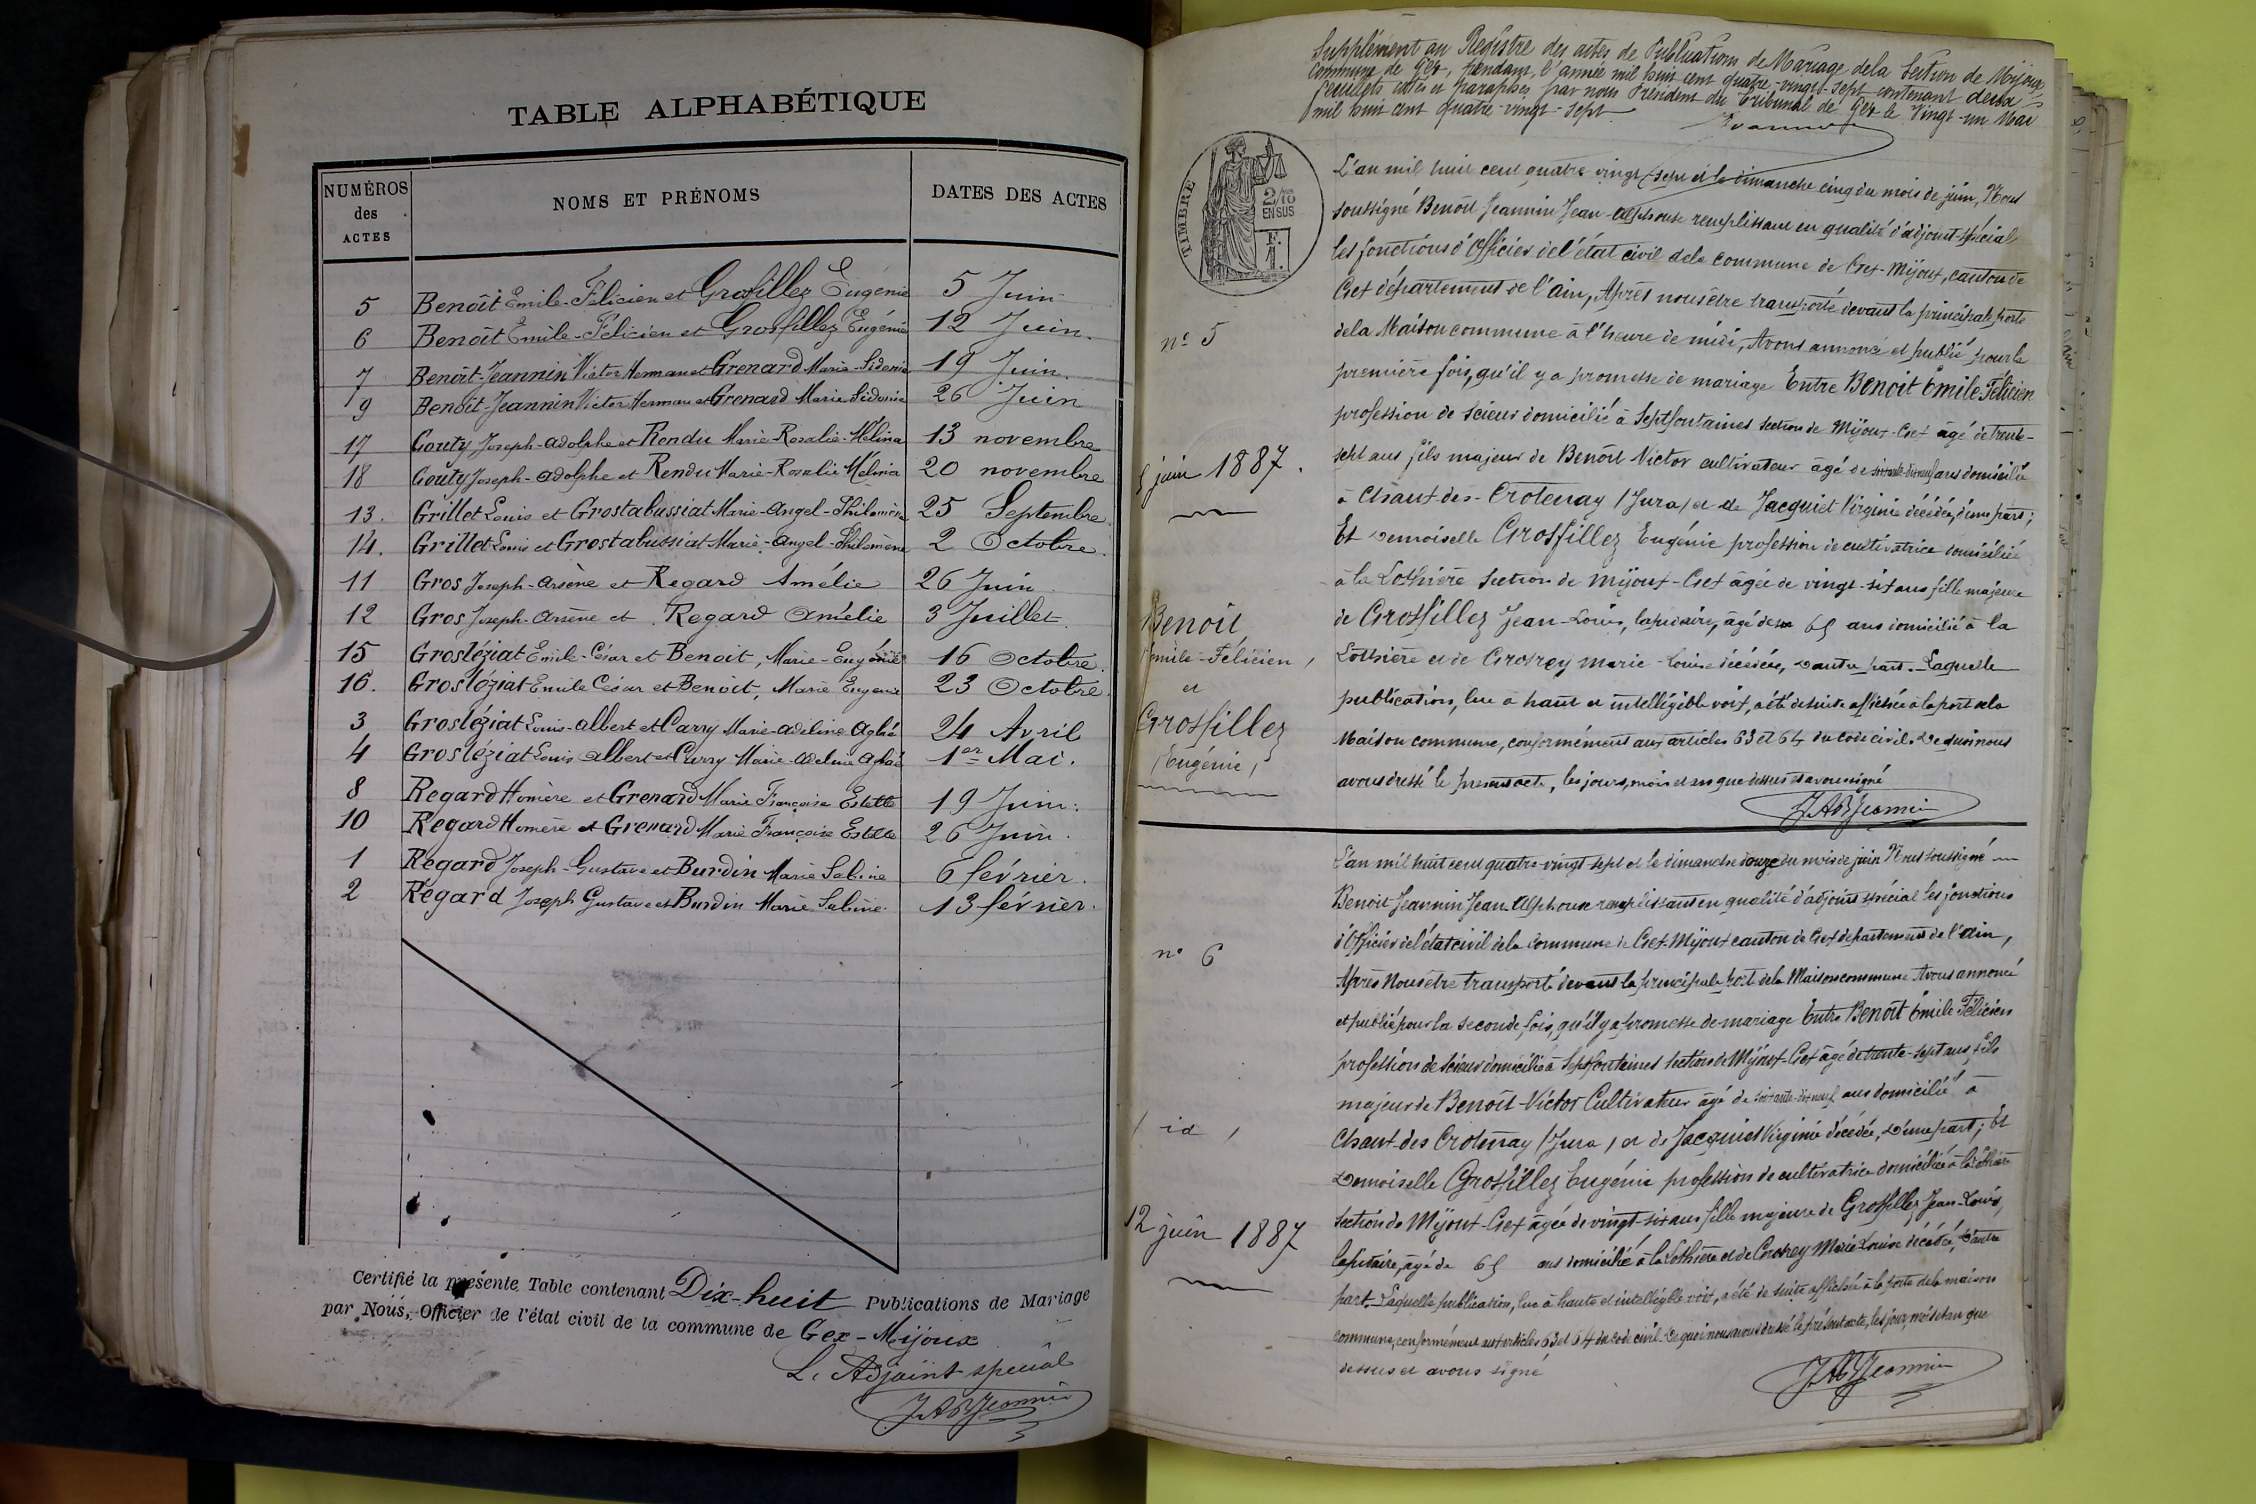 TABLE ALPHABÉTIQUE
NUMÉROS des ACTES
NOMS ET PRÉNOMS
DATES DES ACTES
5 Benoît Emile-Félicien et Grosfillez Eugénie 5 Juin
6 Benoît Emile-Félicien et Grosfillez Eugénie 12 Juin.
7 Benoît-Jeannin Victor Herman et Grenard Marie-Sidonie 19 Juin.
9 Benoît-Jeannin Victor Herman et Grenard Marie Sidonie 26 Juin
17 Gouty Joseph-Adolphe et Rendu Marie-Rosalie-Mélina 13 novembre
18 Gouty Joseph-Adolphe et Rendu Marie-Rosalie Mélina 20 novembre
13. Grillet Louis et Grostabussiat Marie-Angel-Philomène 25 Septembre.
14. Grillet Louis et Grostabussiat Marie-Angel-Philomène 2 Octobre.
11 Gros Joseph-Arsène et Regard Amélie 26 Juin
12 Gros Joseph-Arsène et Regard Amélie 3 Juillet.
15 Grosléziat Emile-César et Benoit, Marie-Eugénie 16 Octobre.
16. Grosléziat Emile César et Benoit, Marie Eugenie 23 Octobre.
3 Grosléziat Louis-Albert et Carry Marie-Adeline Aglaé 24 Avril
4 Grosléziat Louis Albert et Carry Marie-Adeline Aglaé 1er Mai.
8 Regard Homère et Grenard Marie Françoise Estelle 19 Juin.
10 Regard Homère et Grenard Marie Françoise Estelle 26 Juin.
1 Regard Joseph-Gustave et Burdin Marie Sabine 6 février.
2 Regard Joseph Gustave et Burdin Marie Sabine. 13 février.
Certifié la présente Table contenant Dix-huit Publications de Mariage
par Nous, Officier de l'état civil de la commune de Gex-Mijoux
L'Adjoint spécial
JABJeannin
Supplément au Registre des actes de Publications de Mariage de la Section de Mijoux
Commune de Gex, pendant l'année mil huit cent quatre-vingt-sept contenant deux
feuillets cotés et paraphés par nous Président du Tribunal de Gex le Vingt-un Mai
mil huit cent quatre-vingt-sept
TIMBRE
2/10 EN SUS
L'an mil huit cent quatre vingt sept et le dimanche cinq du mois de juin, Nous
soussigné Benoît Jeannin Jean-Alphonse remplissant en qualité d'adjoint-spécial
les fonctions d'Officier de l'état civil de la commune de Gex-Mijoux, canton de
Gex département de l'Ain, Après nous être transporté devant la principale porte
n° 5
de la Maison commune à l'heure de midi, Avons annoncé et publié pour la
première fois, qu'il y a promesse de mariage Entre Benoit Émile Félicien
profession de scieur domicilié à Septfontaines section de Mijoux-Gex âgé de trente-
5 juin 1887.
sept ans fils majeur de Benoît Victor cultivateur âgé de soixante-dix-neuf ans domicilié
à Chaux-des-Crotenay (Jura) et de Jacquiet Virginie décédée, d'une part;
Et Demoiselle Grosfillez Eugénie profession de cultivatrice domiciliée
à la Lothière Section de Mijoux-Gex âgée de vingt-six ans fille majeure
Benoit
Emile-Félicien,
et
Grosfillez
(Eugénie)
de Grosfillez Jean-Louis, lapidaire, âgé de 65 ans domicilié à la
Lothière et de Grosrey Marie-Louise décédée, d'autre part. Laquelle
publication, lue à haute et intelligible voix, a été de suite affichée à la porte de la
Maison commune, conformément aux articles 63 et 64 du code civil. De quoi nous
avons dressé le présent acte, les jours, mois et an que dessus et avons signé
JABJeannin
L'an mil huit cent quatre-vingt sept et le dimanche douze du mois de juin Nous soussigné
Benoit Jeannin Jean-Alphonse remplissant en qualité d'adjoint spécial les fonctions
d'Officier de l'état civil de la commune de Gex-Mijoux canton de Gex département de l'Ain,
n° 6
Après Nous être transporté devant la principale porte de la Maison commune Avons annoncé
et publié pour la seconde fois, qu'il y a promesse de mariage Entre Benoît Émile Félicien
profession de scieur domicilié à Septfontaines section de Mijoux-Gex âgé de trente-sept ans, fils
majeur de Benoît-Victor Cultivateur âgé de soixante-dix-neuf ans domicilié à
( id )
Chaux-des-Crotenay (Jura) et de Jacquiet Virginie décédée, d'une part; Et
Demoiselle Grosfillez Eugénie profession de cultivatrice domiciliée à la Lothière
12 juin 1887
Section de Mijoux-Gex âgée de vingt-six ans fille majeure de Grosfillez Jean-Louis,
lapidaire, âgé de 65 ans domicilié à la Lothière et de Grosrey Marie Louise décédée, d'autre
part. Laquelle publication, lue à haute et intelligible voix, a été de suite affichée à la porte de la maison
commune, conformément aux articles 63 et 64 du code civil. De quoi nous avons dressé le présent acte, les jour, mois et an que
dessus et avons signé
JABJeannin